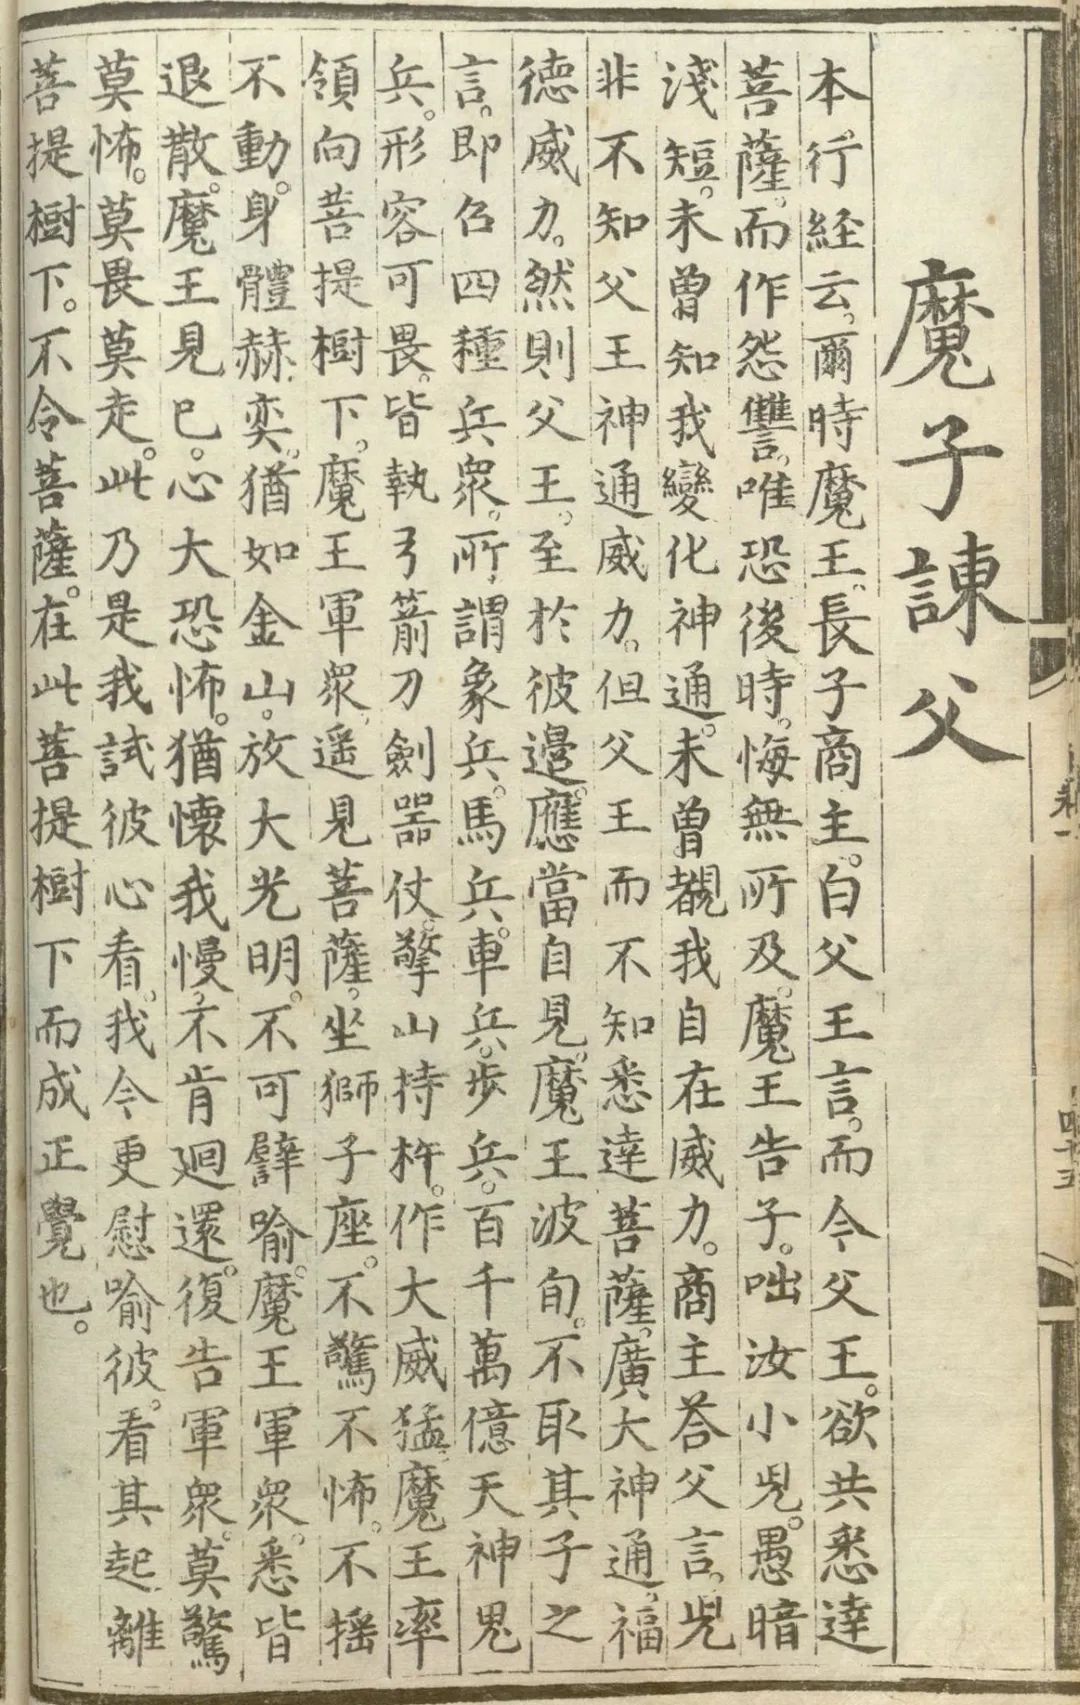 魔子諫父
本行経云。爾時魔王。長子商主。白父王言。而今父王。欲共悉達
菩薩。而作怨讐。唯恐後時。悔無所及。魔王告子。咄汝小兒。愚暗
淺短。未曾知我變化神通。未曾覩我自在威力。商主荅父言。兒
非不知父王神通威力。但父王而不知悉達菩薩。廣大神通。福
德威力。然則父王。至於彼邊。應當自見。魔王波旬。不取其子之
言。即召四種兵衆。所謂象兵。馬兵。車兵。步兵。百千萬億天神鬼
兵。形容可畏。皆執弓箭刀劍器仗。擎山持杵。作大威猛。魔王率
領向菩提樹下。魔王軍衆。遥見菩薩。坐獅子座。不驚不怖。不揺
不動。身體赫奕。猶如金山。放大光明。不可譬喻。魔王軍衆。悉皆
退散。魔王見已。心大恐怖。猶懷我慢。不肯廻還。復告軍衆。莫驚
莫怖。莫畏莫走。此乃是我試彼心看。我今更慰喻彼。看其起離
菩提樹下。不令菩薩。在此菩提樹下而成正覺也。